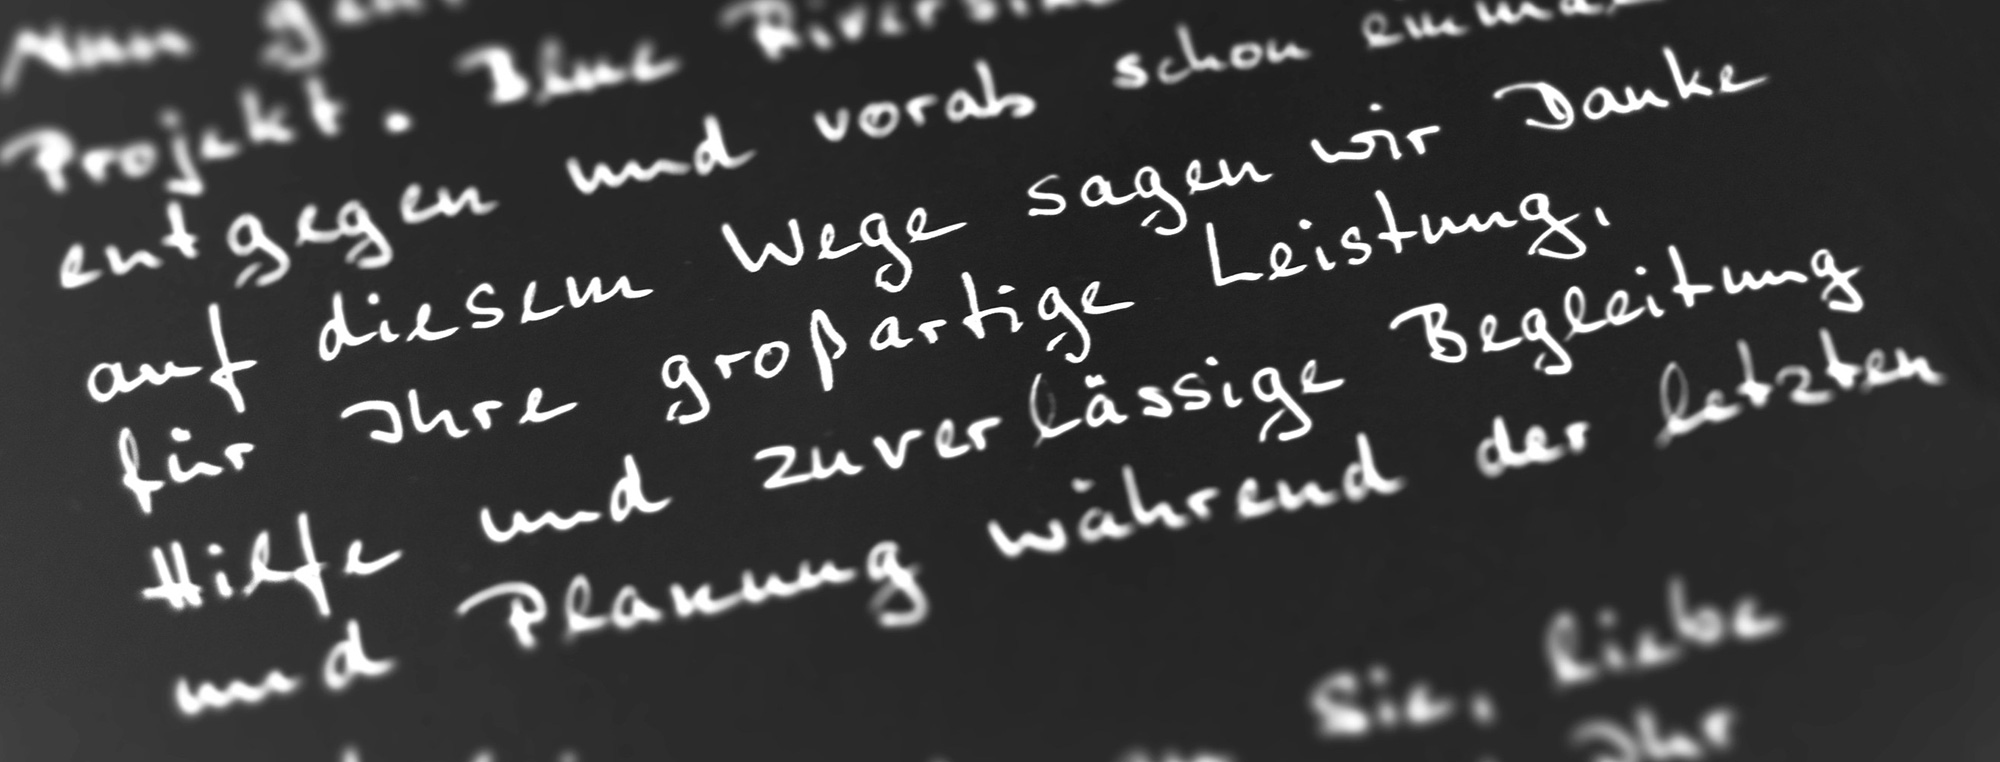 Nun
Projekt. Blue
entgegen und vorab schon einmal
auf diesem Wege sagen wir Danke
für Ihre großartige Leistung,
Hilfe und zuverlässige Begleitung
und Planung während der letzten
Sie, liebe
Ihr